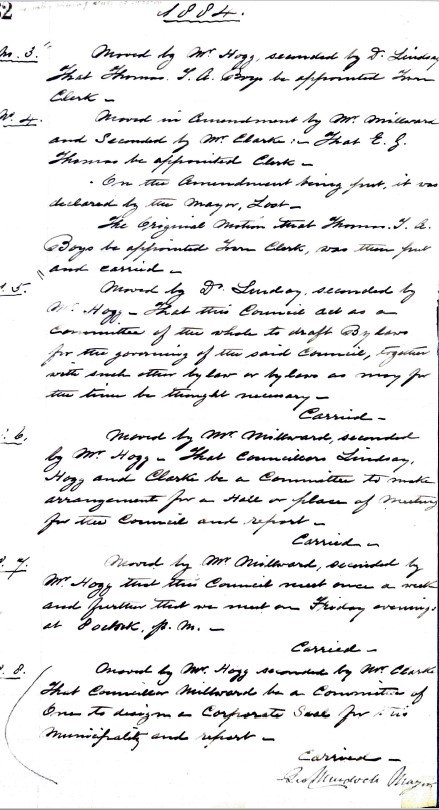 32
1884.
No. 3. Moved by Mr. Hogg, seconded by Dr. Lindsay
That Thomas. T. A. Boys be appointed Town
Clerk —
No. 4. Moved in Amendment by Mr. Millward
and Seconded by Mr. Clarke :— That E. G.
Thomas be appointed Clerk —
On the Amendment being put, it was
declared by the Mayor, Lost —
The Original Motion that Thomas. T. A.
Boys be appointed Town Clerk, was then put
and carried —
. 5. Moved by Dr. Lindsay, seconded by
Mr. Hogg — That this Council act as a
Committee of the whole to draft By laws
for the governing of the said Council, together
with such other bylaw or bylaws as may for
the time be thought necessary —
Carried —
. 6. Moved by Mr. Millward, seconded
by Mr. Hogg — That Councillors Lindsay,
Hogg and Clarke be a Committee to make
arrangement for a Hall or place of Meeting
for the Council and report —
Carried —
. 7. Moved by Mr. Millward, seconded by
Mr. Hogg that this Council meet once a week
and further that we meet on Friday evenings
at 8 oclock, p. m. —
Carried —
. 8. Moved by Mr. Hogg seconded by Mr. Clarke
That Councillor Millward be a Committee of
One to design a Corporate Seal for this
Municipality and report —
Carried —
Geo Murdoch Mayor